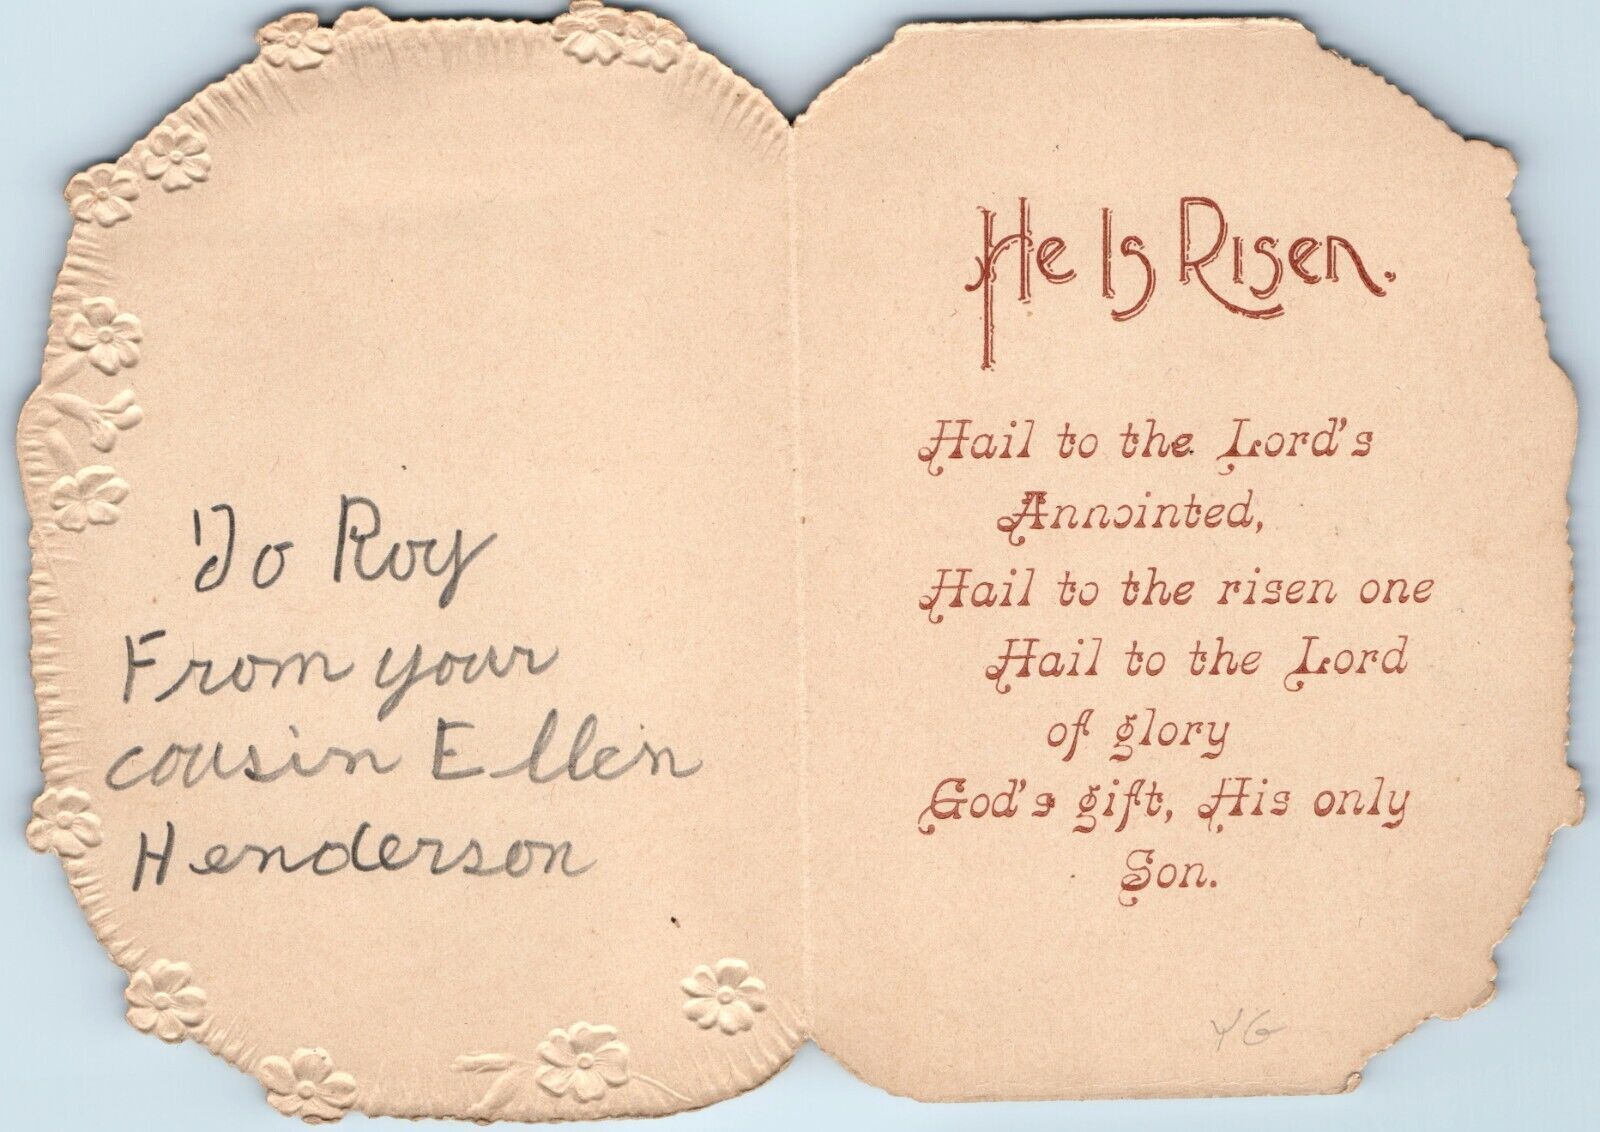 To Roy
From your
cousin Ellen
Henderson
He Is Risen.
Hail to the Lord's
Annointed,
Hail to the risen one
Hail to the Lord
of glory
God's gift, His only
Son.
YG